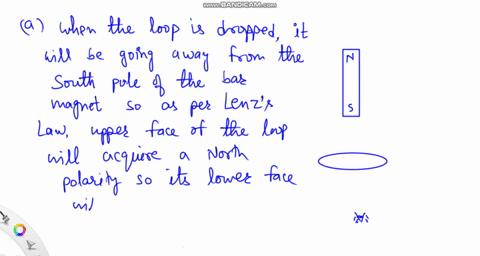 WWW.BANDICAM.COM
(a) when the loop is dropped, it
will be going away from the
South pole of the bar
magnet so as per Lenz's
Law, upper face of the loop
will acquire a North
polarity so its lower face
wil
N
S